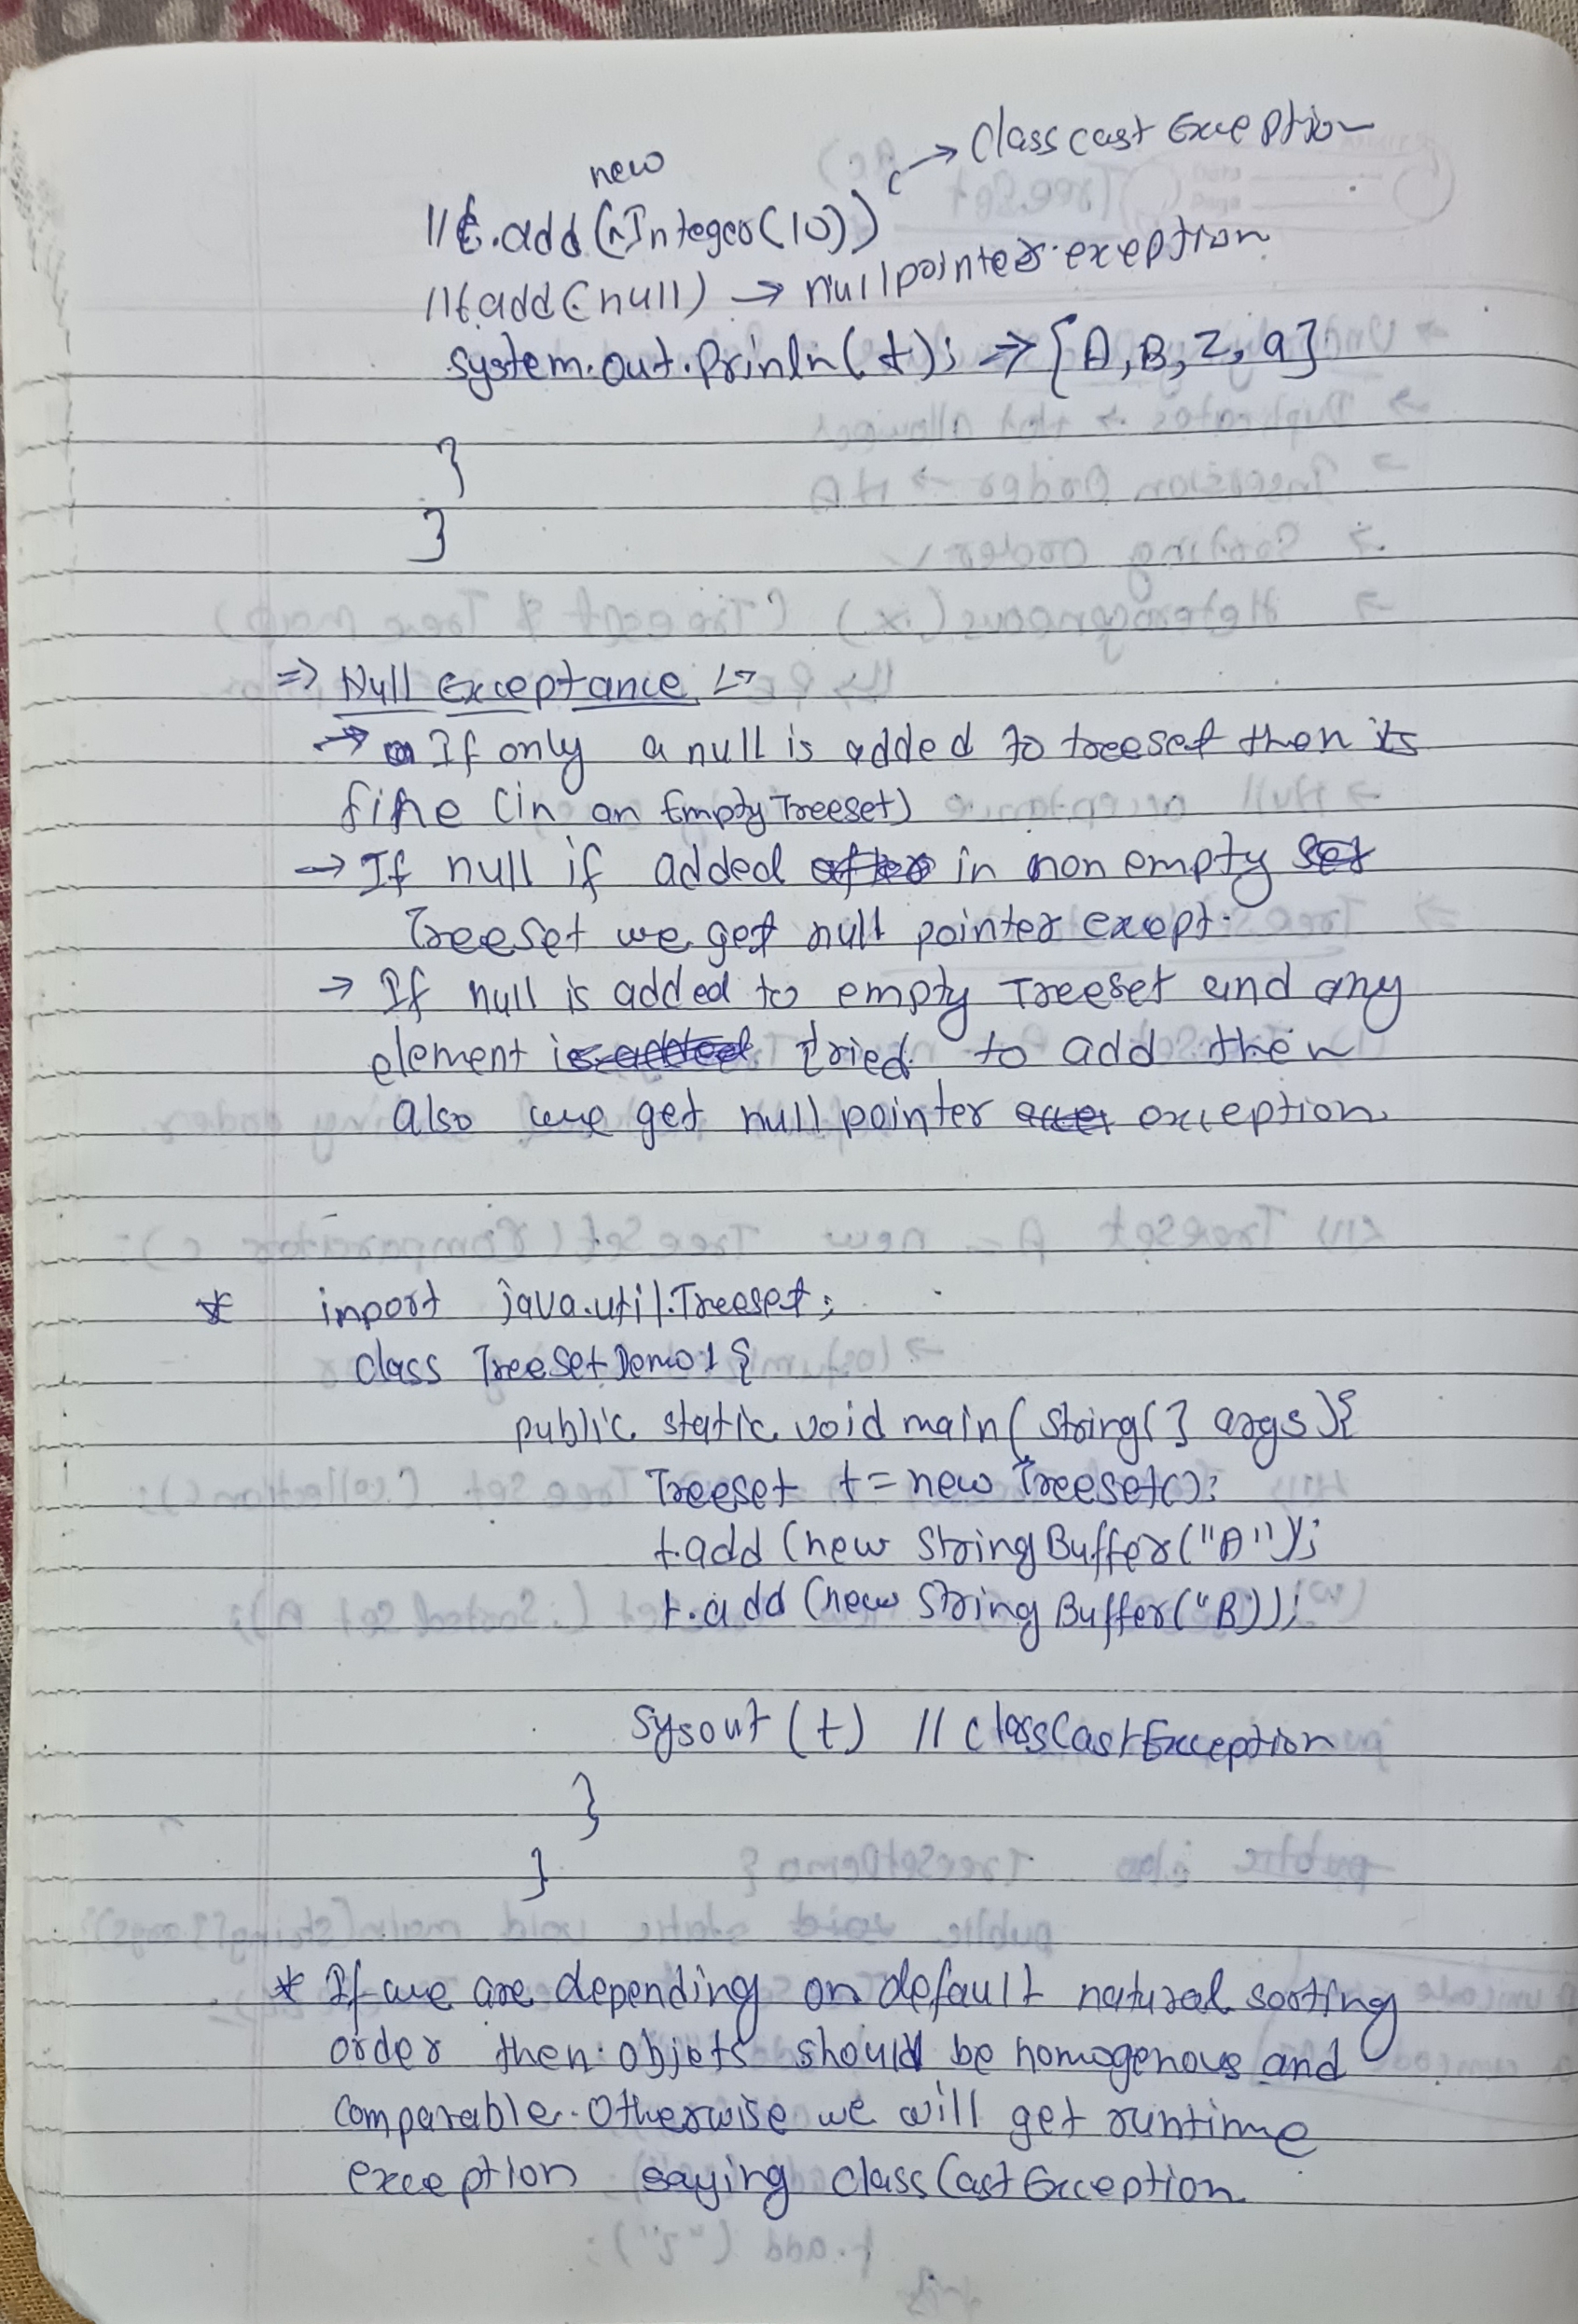 new → ClassCast Exception
//t.add(Integer(10))
//t.add(null) → nullpointer exception
system.out.Prinln(t); ⇒ [A, B, Z, a]
}
}
⇒ Null Exceptance
→ If only a null is added to treeset then its
fine (in an Empty Treeset)
→ If null if added in non empty
Treeset we get null pointer except.
→ If null is added to empty Treeset and any
element tried to add then
also we get null pointer exception.
* import java.util.Treeset;
class TreeSetDemo1 {
public static void main(String[] args){
Treeset t = new Treeset();
t.add (new StringBuffer("A"));
t.add (new StringBuffer("B));
Sysout (t) // ClassCastException
}
}
* If we are depending on default natural sorting
order then objets should be homogenous and
comparable. Otherwise we will get runtime
exception saying classCastException.